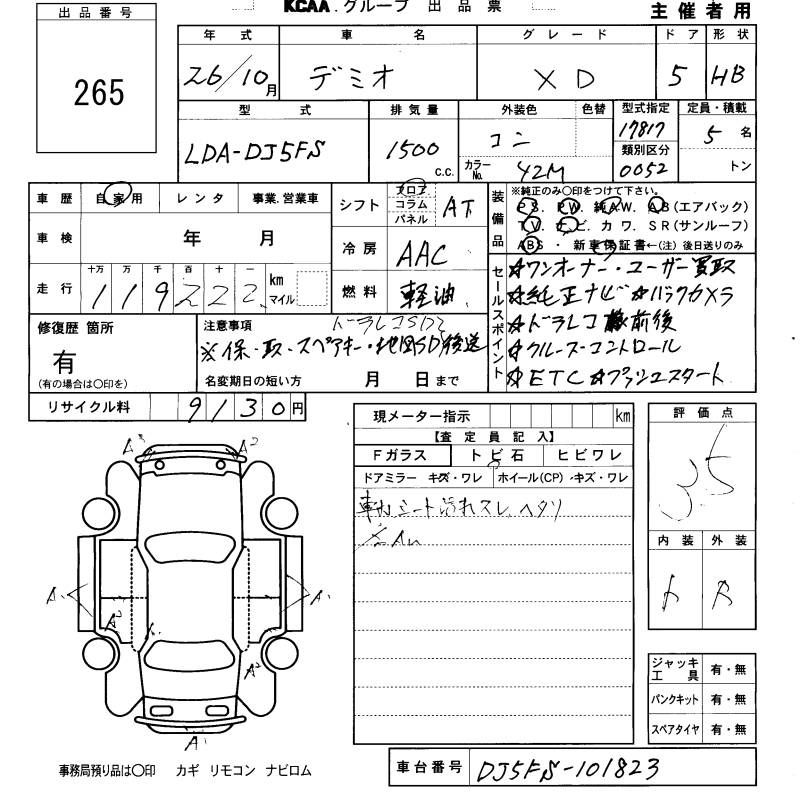 KCAA.グループ 出品票
主催者用
出品番号
265
年式 車名 グレード ドア 形状
26/10月 デミオ XD 5 HB
型式 排気量 外装色 色替 型式指定 定員・積載
LDA-DJ5FS 1500 c.c. コン 17817 5名
カラーNo. 42M 類別区分 0052 トン
車歴 自家用 レンタ 事業.営業車
車検 年 月
十万 万 千 百 十 一
走行 119222 km マイル
シフト フロア コラム パネル AT
冷房 AAC
燃料 軽油
装備品
※純正のみ〇印をつけて下さい。
PS. PW. 純AW. AB(エアバック)
TV. ナビ. カワ. SR(サンルーフ)
ABS ・ 新車保証書←(注)後日送りのみ
セールスポイント
☆ワンオーナー・ユーザー買取
☆純正ナビ☆バックカメラ
☆ドラレコ 前後
☆クルーズコントロール
☆ETC☆プッシュスタート
修復歴 箇所
有
(有の場合は〇印を)
注意事項
ドラレコSD
※保・取・スペアキー・地図SD後送
名変期日の短い方 月 日まで
リサイクル料 9130円
現メーター指示 km
【査定員記入】
Fガラス トビ石 ヒビワレ
ドアミラー キズ・ワレ ホイール(CP) キズ・ワレ
シート汚れスレ、ヘタリ
評価点
3.5
内装 外装
A A A A A A A
ジャッキ工具 有・無
パンクキット 有・無
スペアタイヤ 有・無
事務局預り品は〇印 カギ リモコン ナビロム
車台番号 DJ5FS-101823